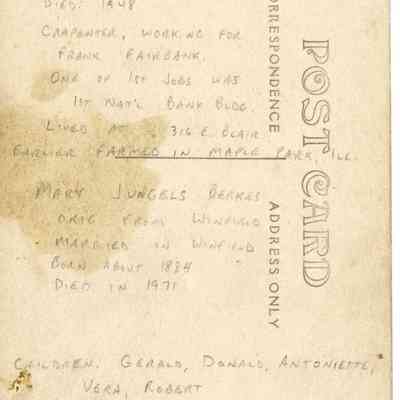 DIED: 1948
CARPENTER, WORKING FOR
FRANK FAIRBANK.
ONE OF 1ST JOBS WAS
1ST NAT'L BANK BLDG.
LIVED AT 316 E. BLAIR
EARLIER FARMED IN MAPLE PARK, ILL.
MARY JUNGELS BERKES
ORIG FROM WINFIELD
MARRIED IN WINFIELD
BORN ABOUT 1884
DIED IN 1971
CHILDREN: GERALD, DONALD, ANTONIETTE,
VERA, ROBERT
POST CARD
CORRESPONDENCE
ADDRESS ONLY